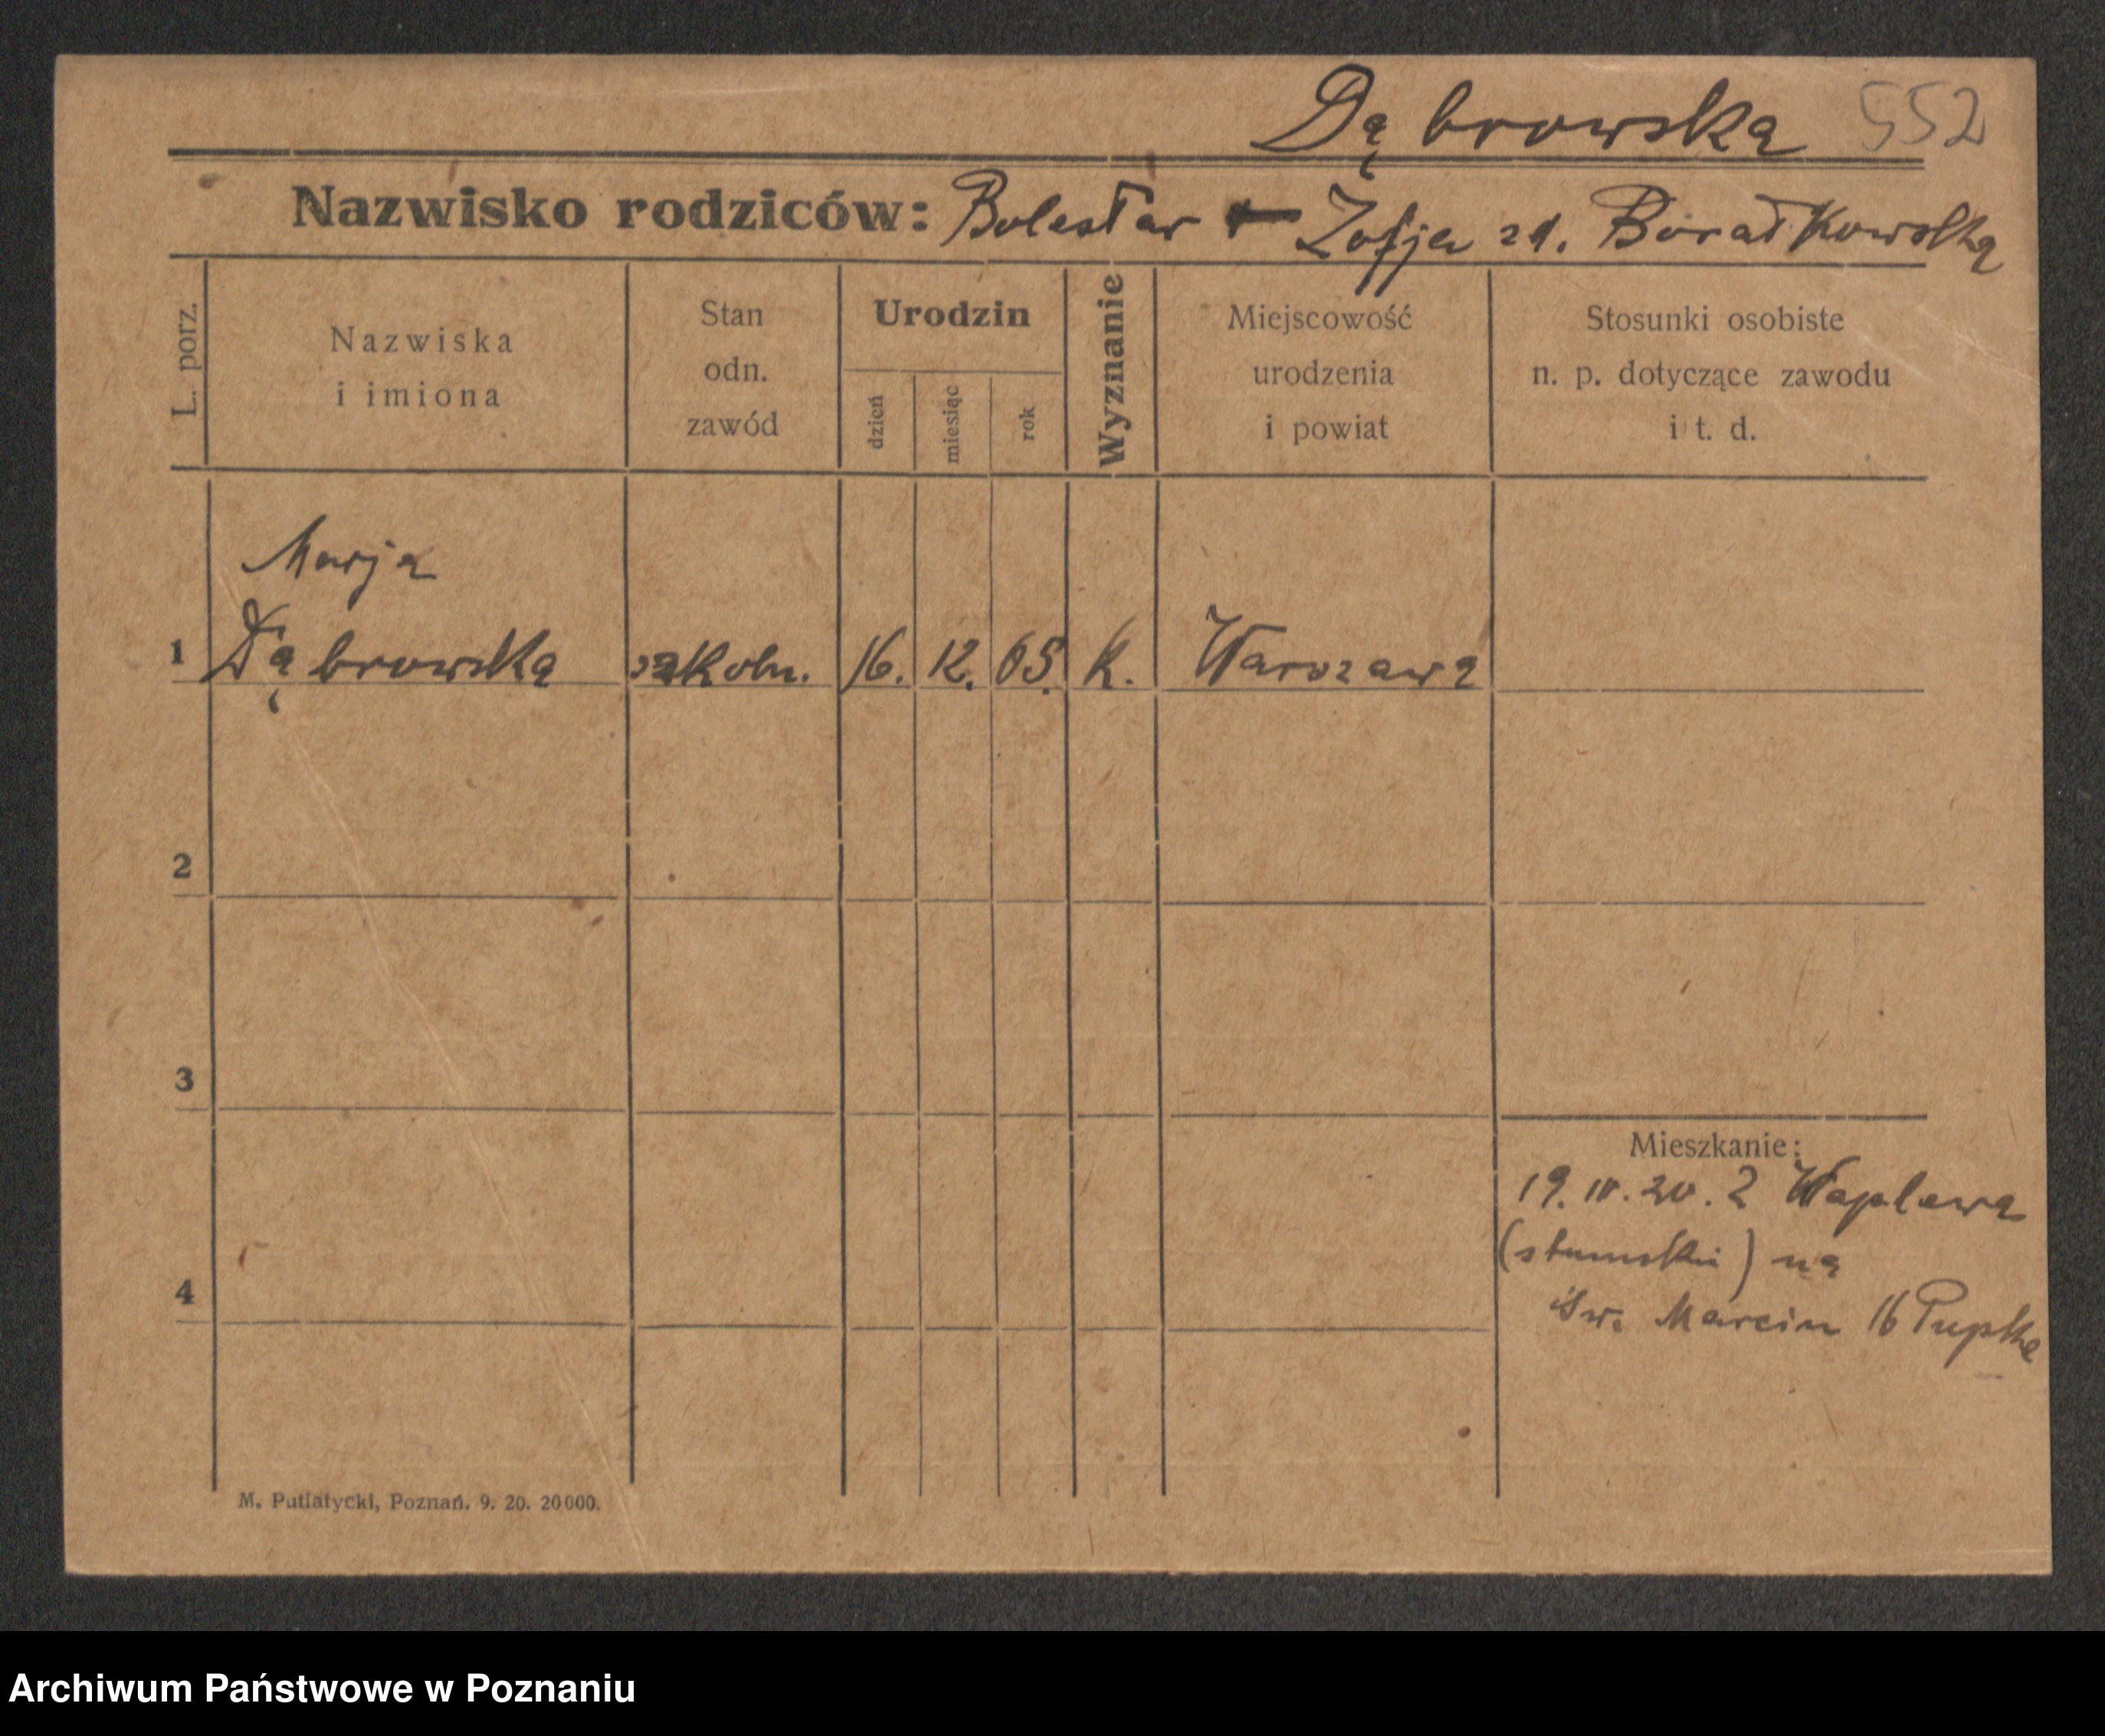 Dąbrowska 552
Nazwisko rodziców: Bolesław + Zofja zd. Boratkowska
L. porz.
Nazwiska
i imiona
Stan
odn.
zawód
Urodzin
dzień
miesiąc
rok
Wyznanie
Miejscowość
urodzenia
i powiat
Stosunki osobiste
n. p. dotyczące zawodu
i t. d.
Marja
1 Dąbrowska 16. 12. 05. k. Warszawa
2
3
4
Mieszkanie:
19. 20. z Waplewa
(sztumski) na
św. Marcin 16
M. Putiatycki, Poznań. 9. 20. 20000.
Archiwum Państwowe w Poznaniu